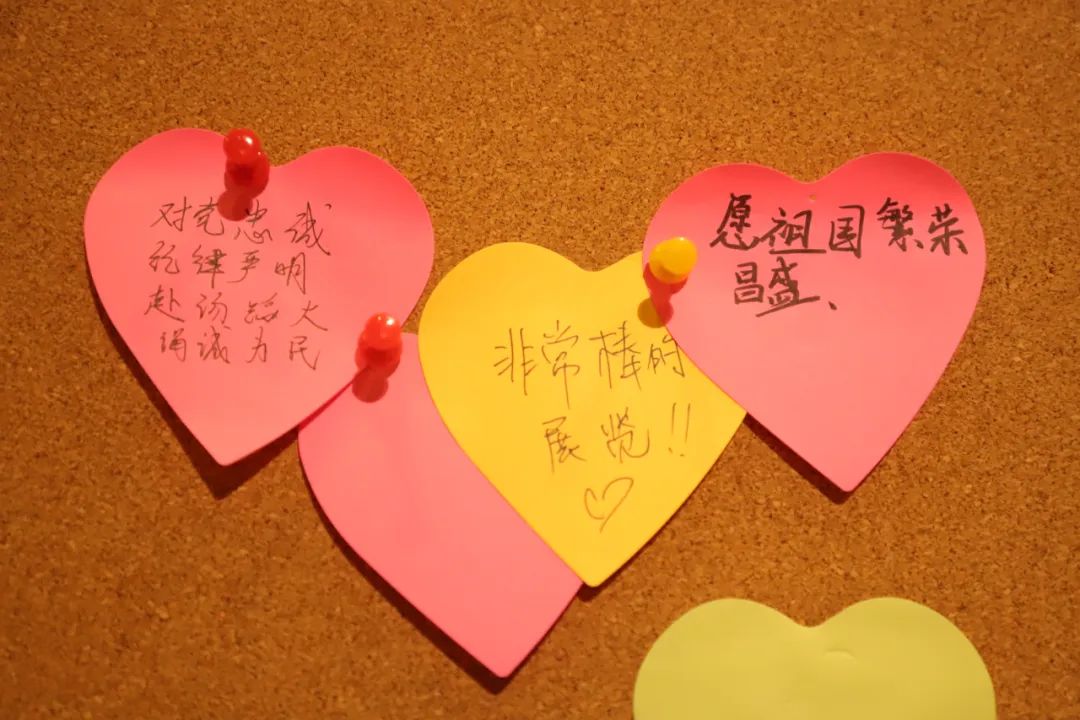 对党忠诚
纪律严明
赴汤蹈火
竭诚为民
非常棒的
展览!!
愿祖国繁荣
昌盛、